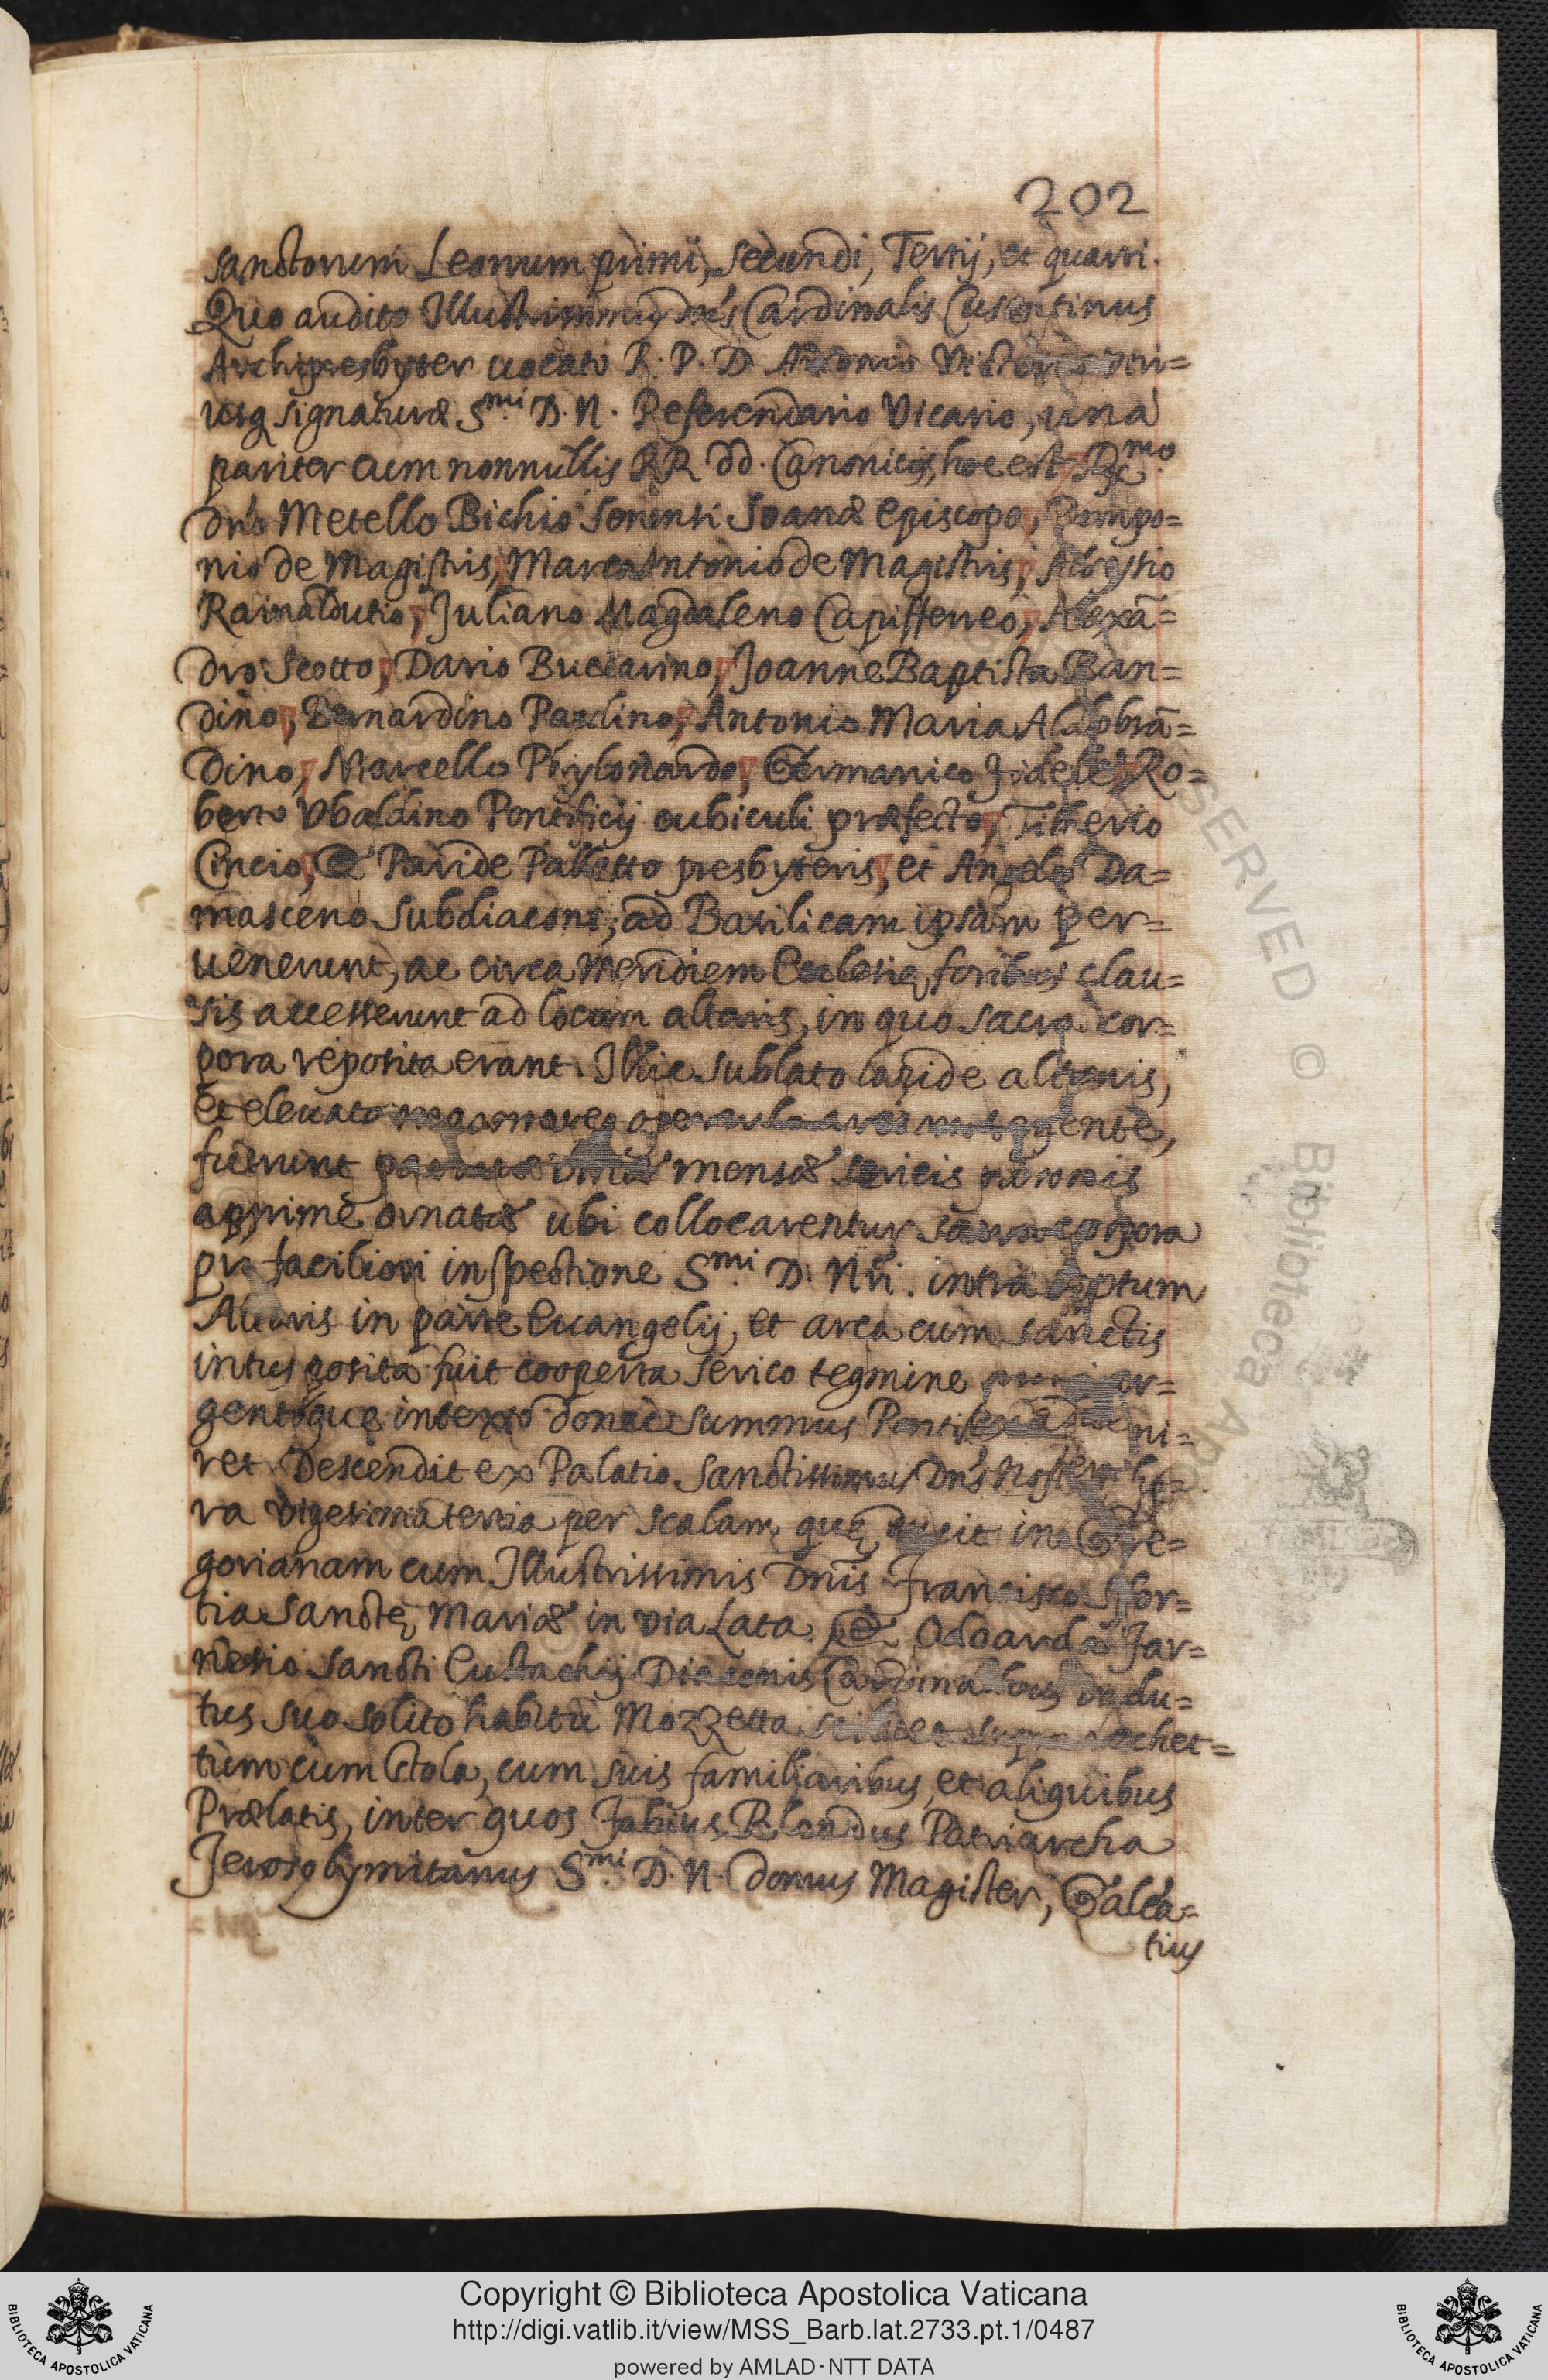 202
sanctorum Leonum primi, secundi, Tertij, et quarti.
Quo audito Illustrissimus Dn̄s Cardinalis Cusentinus
Archipresbyter uocato R. P. D. Antonio Victorio utri=
usq signaturæ Smi D. N. Referendario Vicario, una
pariter cum nonnullis RR dd. Canonicis, hoc est Rmo
dn̄o Metello Bichio Senensi Soanæ episcopo, Pompo=
nio de Magistris, Marco Antonio de Magistris, Aloysio
Rainaldutio, Juliano Magdaleno Capifferreo, Alexā=
dro Scotto, Dario Buccarino, Joanne Baptista Ban=
dino, Bernardino Paulino, Antonio Maria Aldobrā=
dino, Marcello Phylonardo, Germanico Fidele, Ro=
berto Vbaldino Pontificij cubiculi præfecto, Tiberio
Cincio, & Paride Palletto presbyteris, et Angelo Da=
masceno subdiacono, ad Basilicam ipsam per=
uenerunt, ac circa meridiem Ecclesię foribus clau=
sis accesserunt ad locum altaris, in quo sacra cor=
pora reposita erant. Illic sublato lapide altaris,
et eleuato marmoreo operculo arcam tegente,
fuerunt mensæ sericis pannis
apprime ornatæ ubi collocarentur sacra corpora
pro faciliori inspectione Smi D. Nri. intra septum
Altaris in parte Euangelij, et arca cum sanctis
intus posita fuit cooperta serico tegmine ar=
gentoque intexto donec summus Pontifex ni=
ret. Descendit ex Palatio Sanctissimus Dn̄s Noster ho=
ra vigesimatertia per scalam, quę ducit in Gre=
gorianam cum Illustrissimis Dn̄is Francisco Sfor=
tia Sanctę Mariæ in via Lata. & Odoardo Far=
nesio Sancti Eustachij Diaconis Cardinalibus indu=
tus suo solito habitu Mozzetta scilicet supra rochet=
tum cum stola, cum suis familiaribus, et aliquibus
Prælatis, inter quos Fabius Blondus Patriarcha
Jerosolymitanus Smi D. N. domus Magister, Galea=
tius
SERVED © Biblioteca Apo
Copyright © Biblioteca Apostolica Vaticana
http://digi.vatlib.it/view/MSS_Barb.lat.2733.pt.1/0487
powered by AMLAD·NTT DATA
BIBLIOTECA APOSTOLICA VATICANA
BIBLIOTECA APOSTOLICA VATICANA